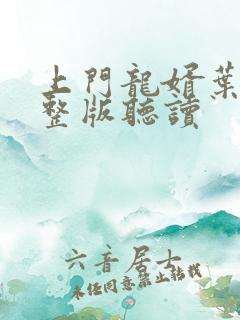 上門龍婿葉
整版聽讀
六音居士
未經同意禁止轉載